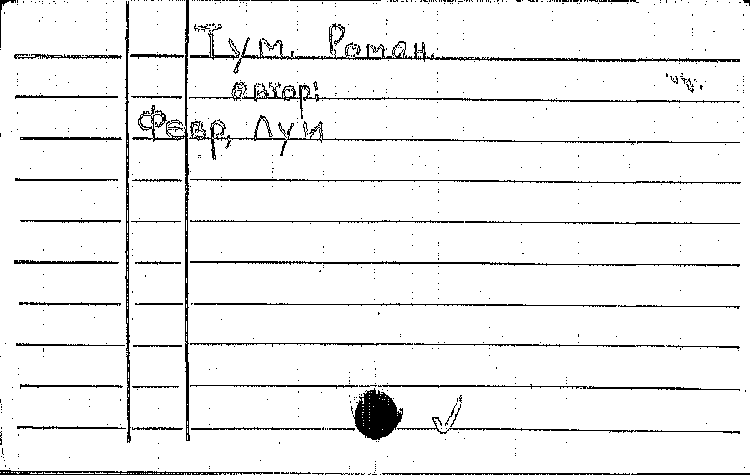 Тум. Роман.
автор:
Февр, Луи